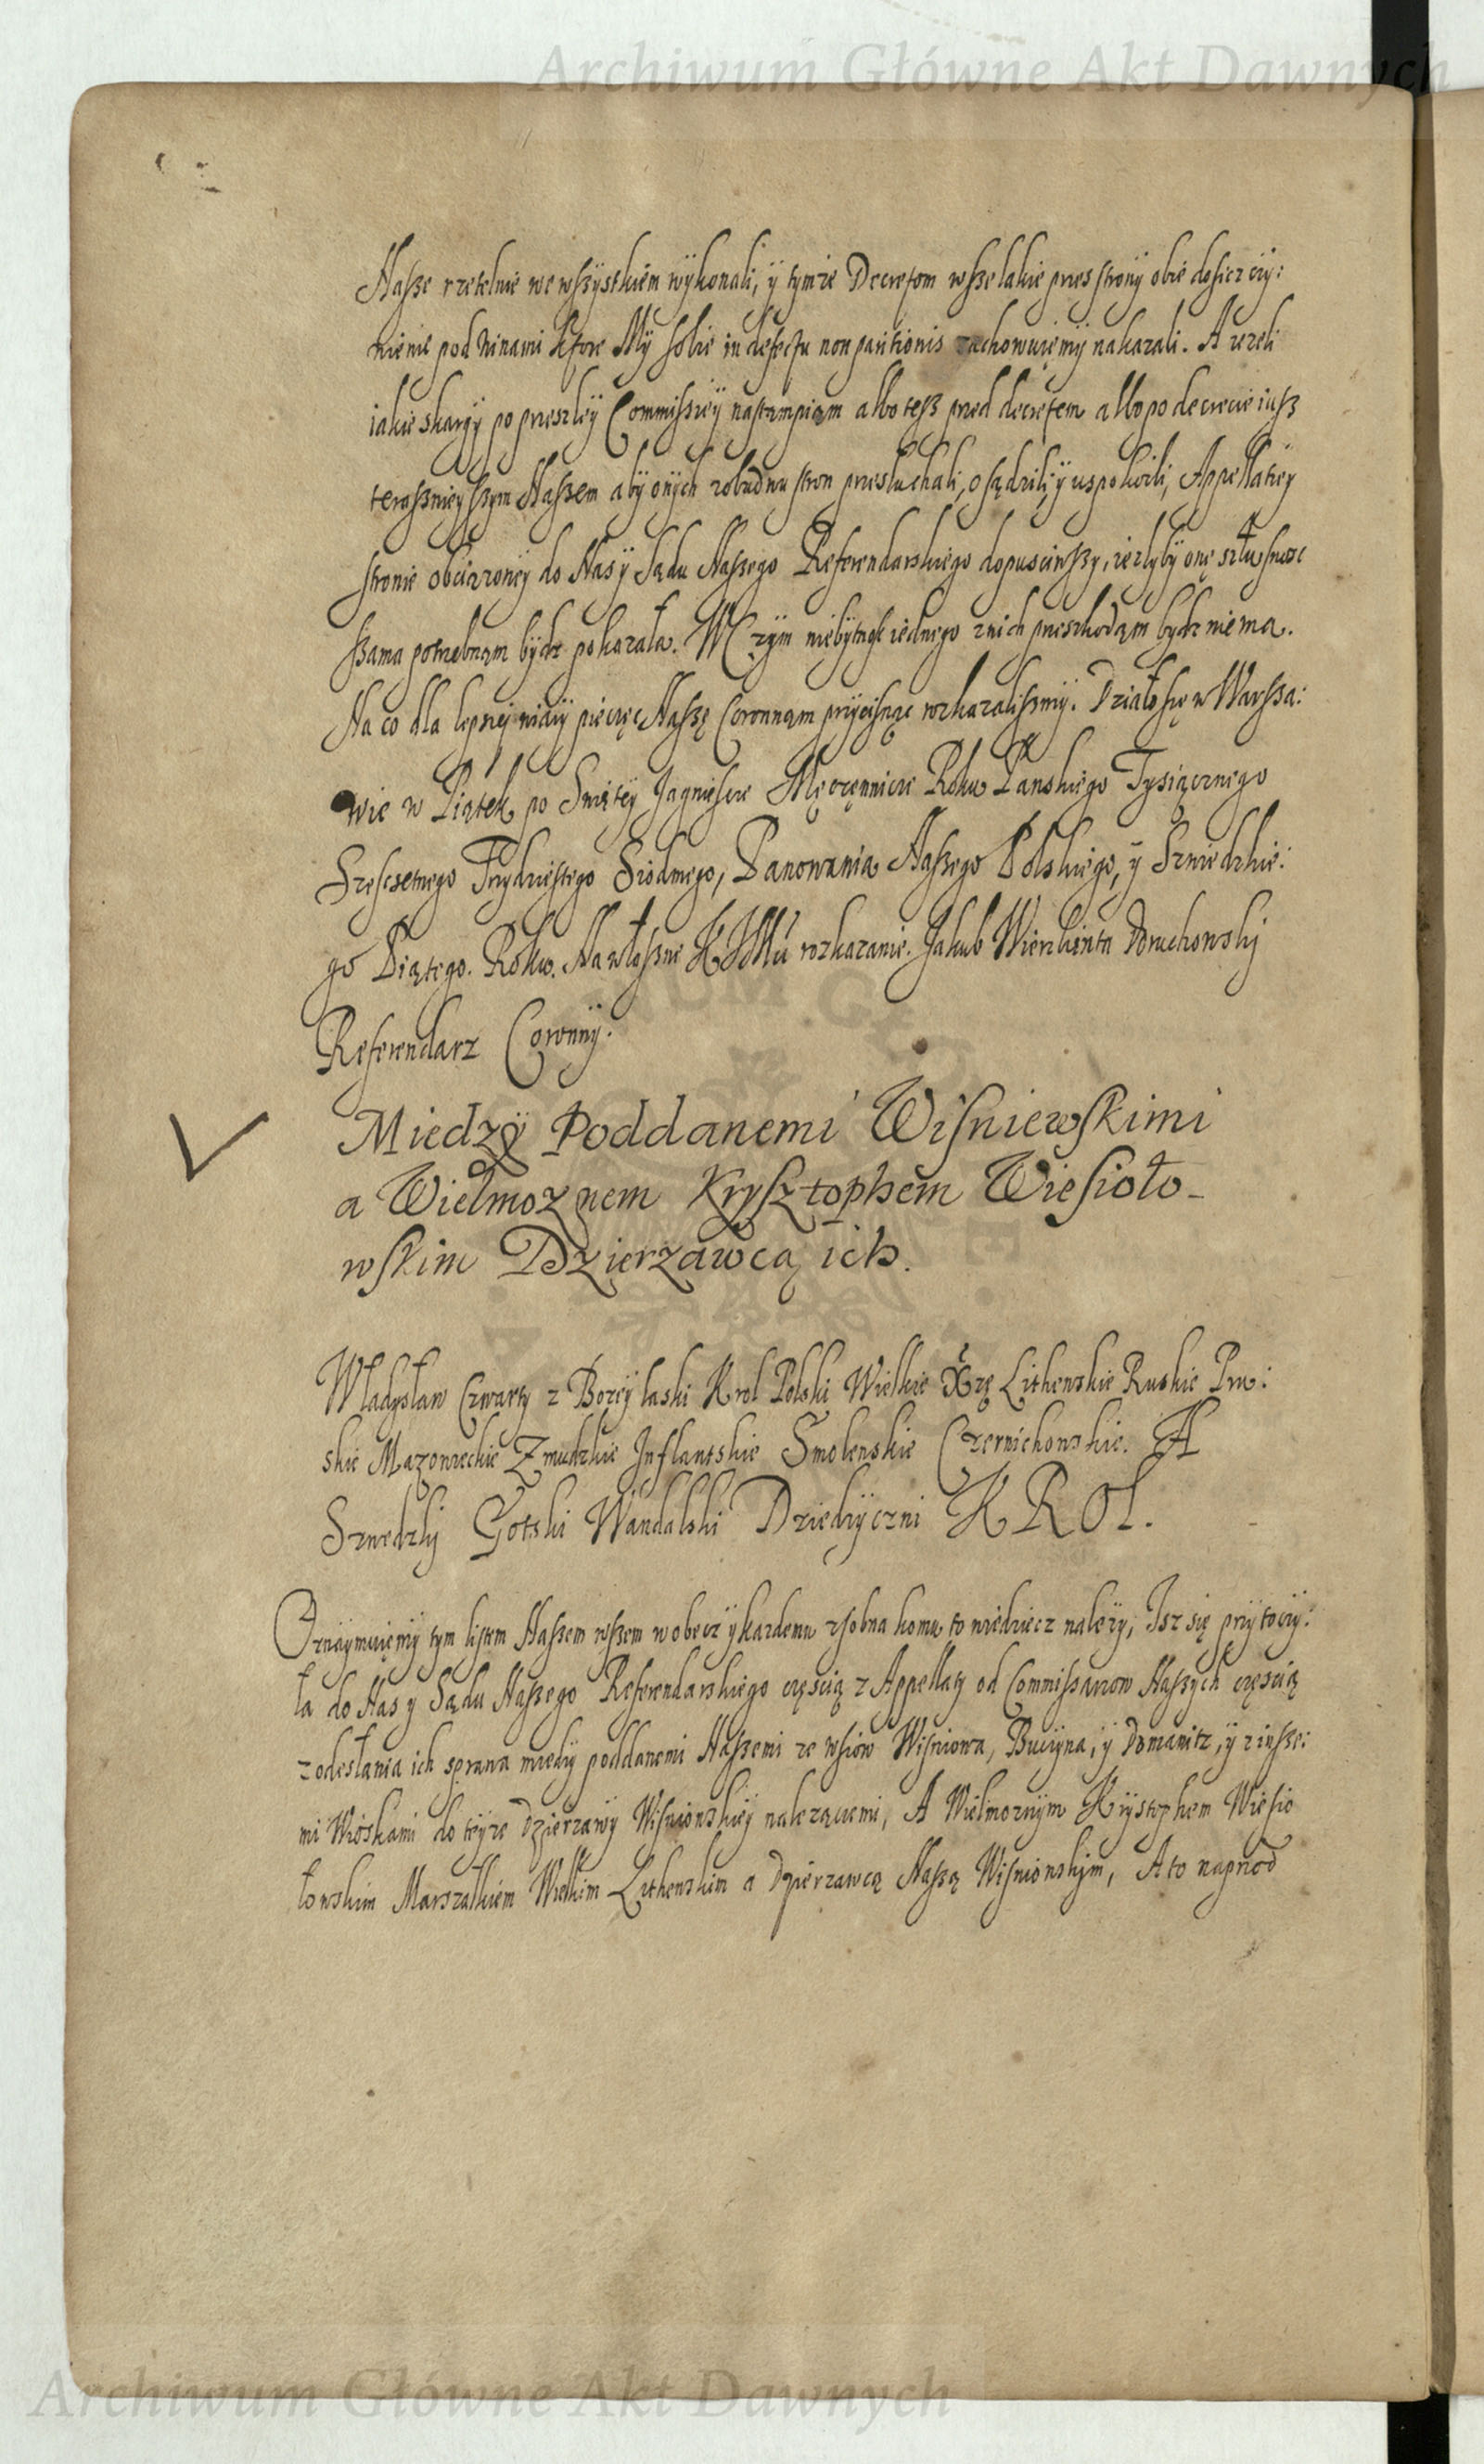 Archiwum Główne Akt Dawnych
Naßze rzetelnie we wßzystkiem wykonali, ÿ tymże Decretom wßzelakie przes strony obie dosicz czÿ:
nienie pod winami ktore Mÿ sobie in defectu non paritionis zachowuięmÿ nakazali. A iezeli
iakie skargÿ po przeszleÿ Commißieÿ nastąmpiąm albo teß przed decretem albo po decrecie iusz
teraßnieyßzym Naßzem abÿ onÿch zobudwu stron przesłuchali, osądzili, ÿ uspokoili, Appellatieÿ
stronie obciązoneÿ do Nas ÿ Sądu Naßzego Referendarskiego dopusciwßzy, iezlyby onę szłusnosc
ßama potrzebnąm bÿdz pokazała. W Czÿm niebytnosc iednego znich przeszkodąm bydz niema.
Na co dla lepszej wiarÿ pieczęc Naßzę Coronnąm przÿcisnąc rozkazalißmÿ. Działo się w Warßza:
wie w Piątek po Swiętey Jagnieszce Męczęnnicze Roku Panskiego Tysiącznego
Szescsetnego Trzydziestego Siodmego, Panowania Naßzego Polskiego, ÿ Szwiedzkie:
go Piątego. Roku. Na własne KJMci rozkazanie. Jakub Wierzbienta Doruchowskj
Referendarz Coronnÿ.
Miedzÿ Poddanemi Wisniewskimi
a Wielmoznem Krysztophem Wiesioło-
wskim Dzierzawcą ich.
Władysław Czwarty z Bozeÿ łaski Krol Polski Wielkie Xzę Lithewskie Ruskie Pru:
skie Mazowieckie Zmudzkie Inflantskie Smolenskie Czernichowskie. A
Szwedzkj Gotski Wandalski Dziedzÿczni KROL.
Oznaymuięmÿ tym listem Naßzem wßzem wobecz ÿ kazdemu zosobna komu to wiedziecz nalezÿ, Isz się przytoczÿ:
ła do Nas y Sądu Naßzego Referendarskiego częscią z Appellatÿ od Commißarzow Naßzych częscią
z odesłania ich sprawa miedzy poddanemi Naßzemi ze wsiow Wisniowa, Buczyna, ÿ Domanitz, ÿ z inßze:
mi Wioskami do teÿze dzierzawÿ Wisniowskieÿ nalezącemi, A Wielmoznÿm Krystophem Wiesio
łowskim Marszałkiem Wielkim Lithewskim a Dzierzawcą Naßzą Wisniowskjm, A to naprzod
Archiwum Główne Akt Dawnych